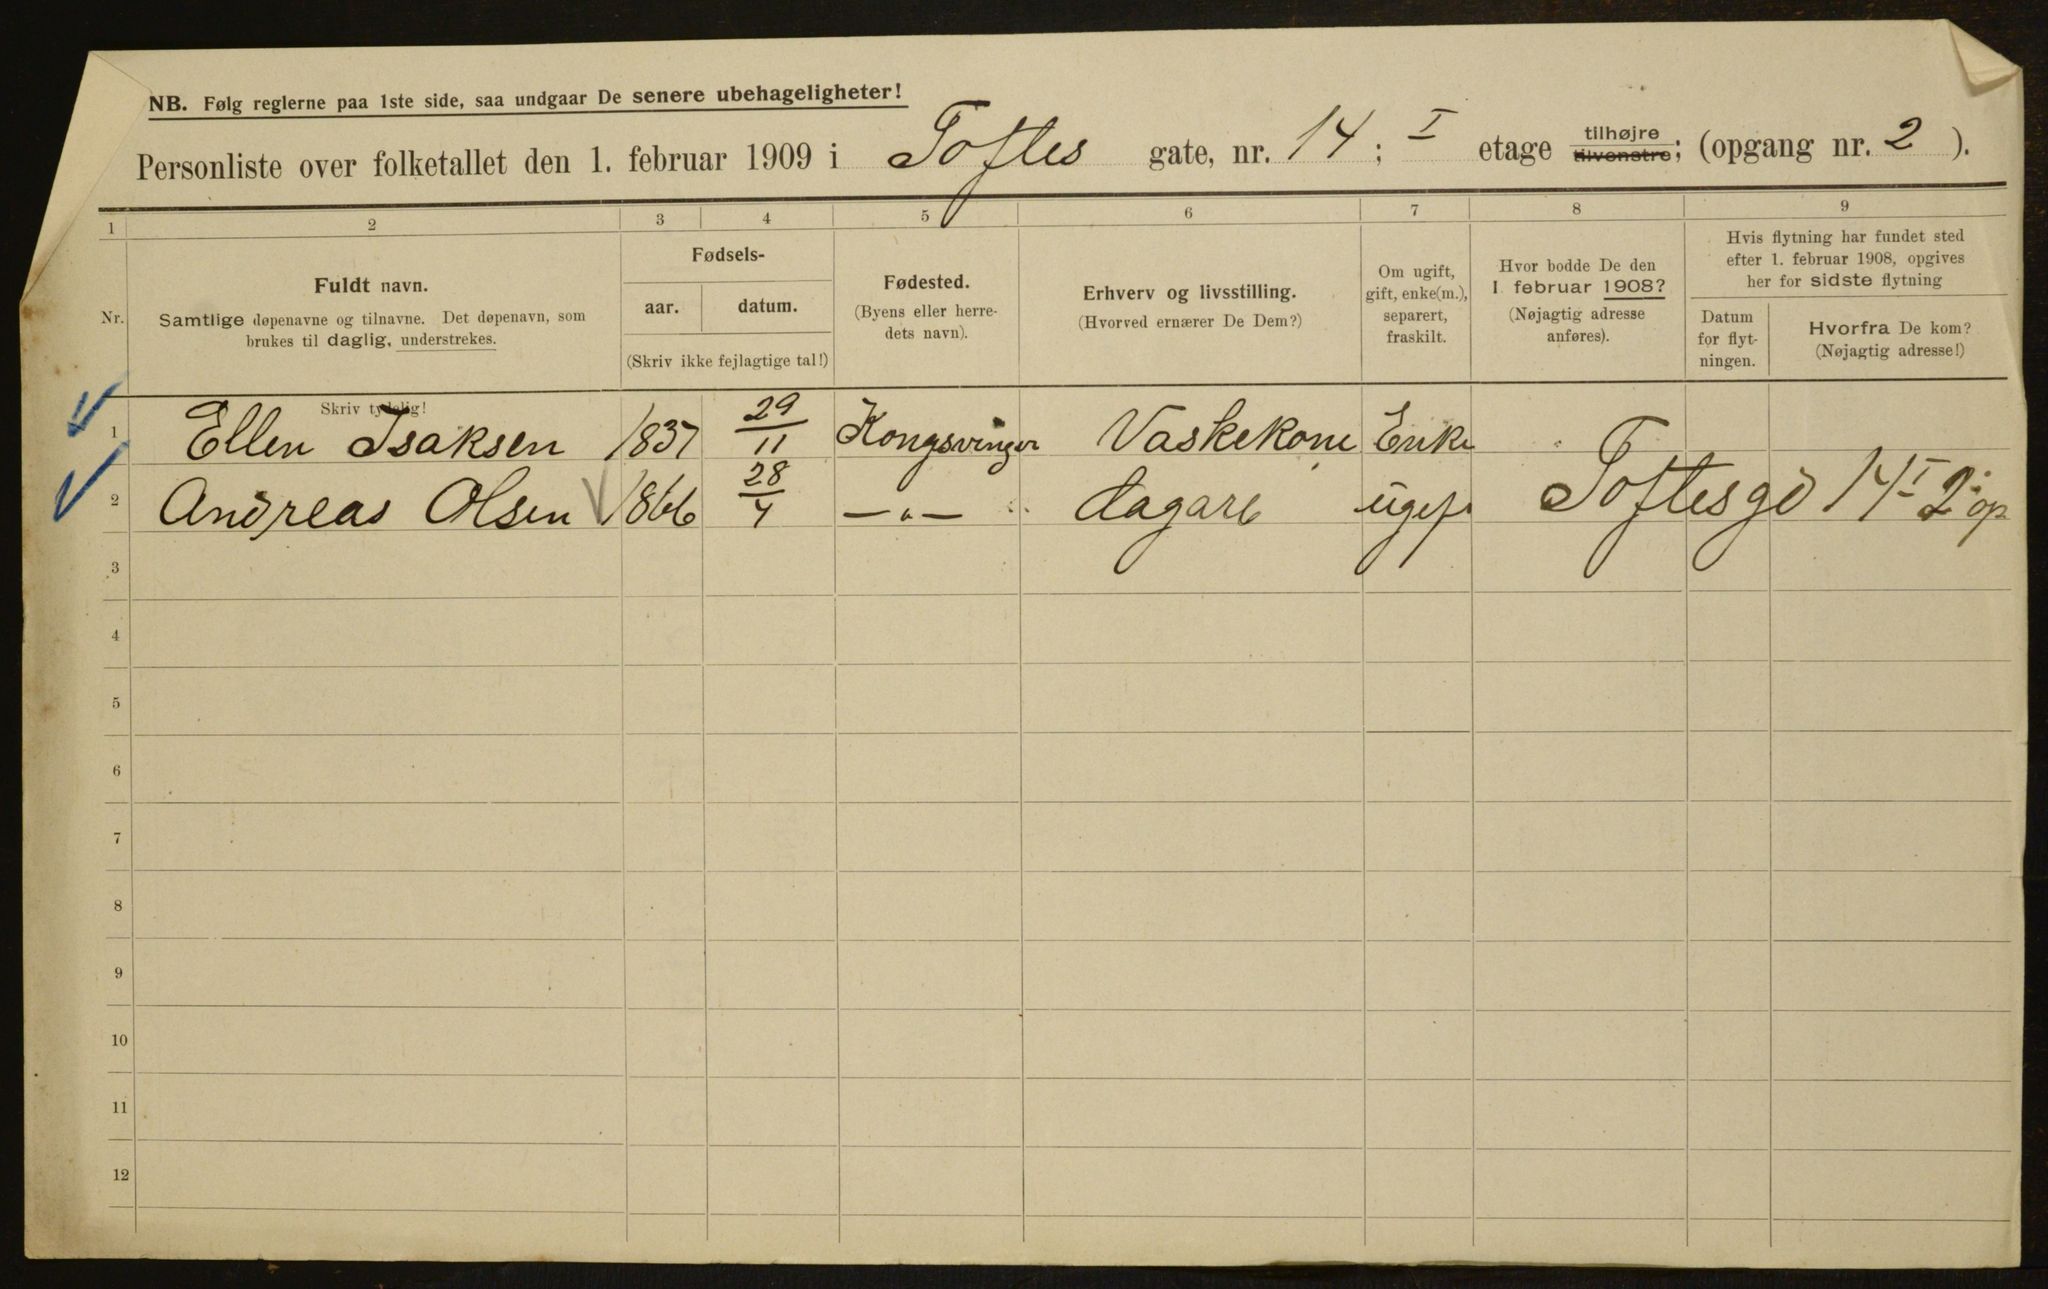 NB. Følg reglerne paa 1ste side, saa undgaar De senere ubehageligheter!
Personliste over folketallet den 1. februar 1909 i Toftes gate, nr. 14; I etage tilhøjre tilvenstre; (opgang nr. 2).
1 2 3 4 5 6 7 8 9
Nr.
Fuldt navn.
Samtlige døpenavne og tilnavne. Det døpenavn, som
brukes til daglig, understrekes.
Fødsels-
aar. datum.
(Skriv ikke fejlagtige tal!)
Fødested.
(Byens eller herre-
dets navn).
Erhverv og livsstilling.
(Hvorved ernærer De Dem?)
Om ugift,
gift, enke(m.),
separert,
fraskilt.
Hvor bodde De den
1 februar 1908?
(Nøjagtig adresse
anføres).
Hvis flytning har fundet sted
efter 1. februar 1908, opgives
her for sidste flytning
Datum
for flyt-
ningen.
Hvorfra De kom?
(Nøjagtig adresse!)
Skriv tydelig!
1 Ellen Isaksen 1837 29/11 Kongsvinger Vaskekone Enke
2 Andreas Olsen 1866 28/4 —„— dagarb ugift Toftesgd 14 I 2 op
3
4
5
6
7
8
9
10
11
12